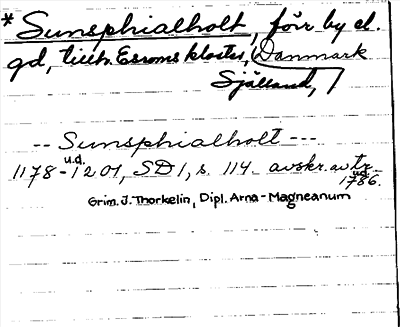 * Sunsphialholt, förr by el.
gd, tillh. Esroms kloster, Danmark
Själland,
-- Sunsphialholt ---
u.d.
1178-1201, SD 1, s. 114. avskr. av tr.
u.d.
1786.
Grim. J. Thorkelin, Dipl. Arna-Magneanum